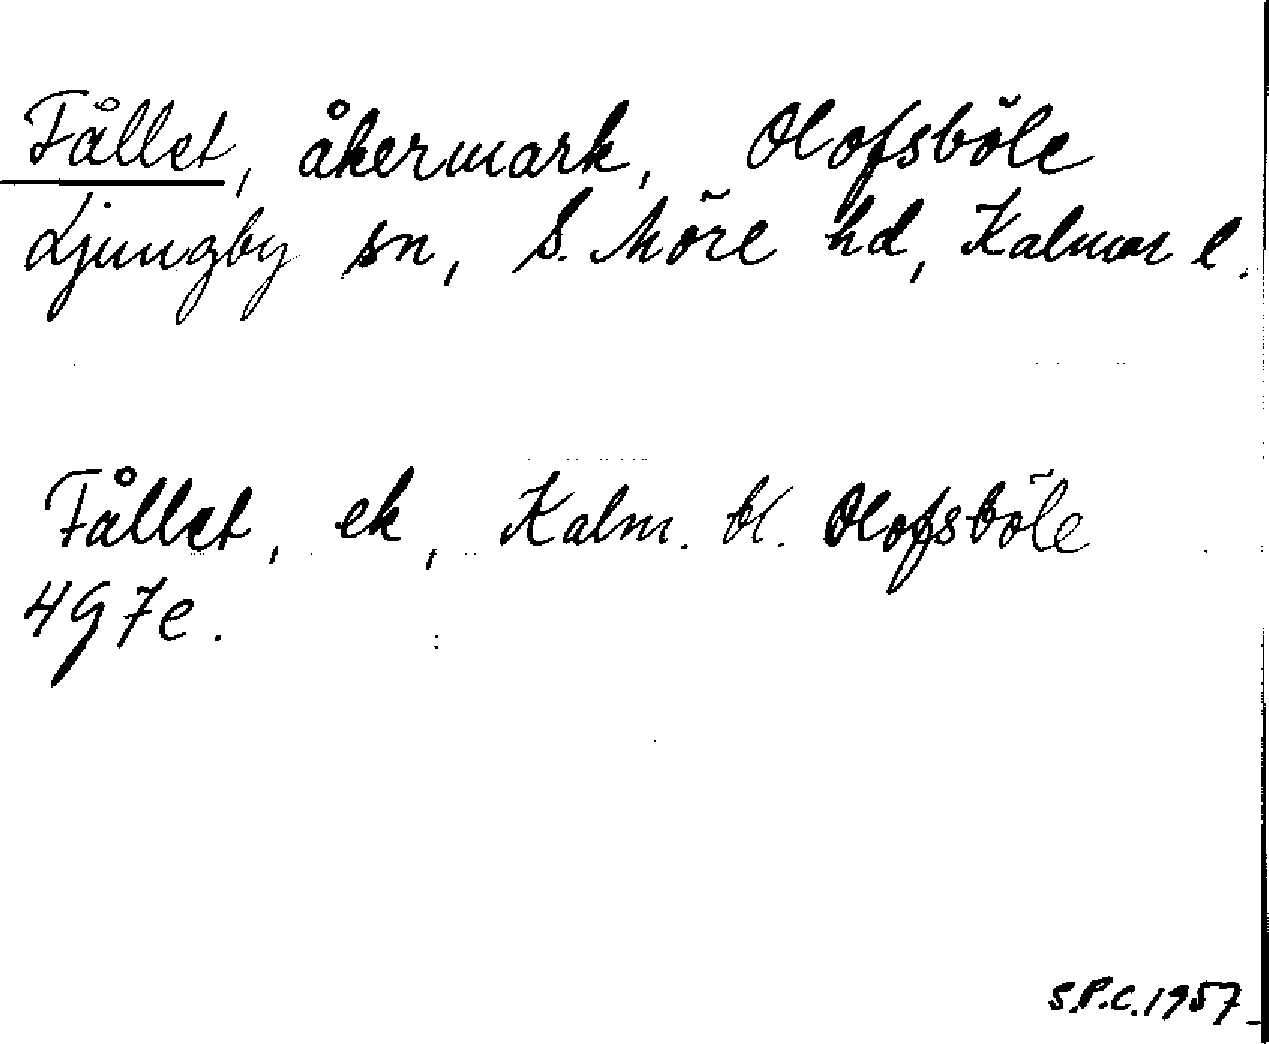 Fållet, åkermark, Olofsböle
Ljungby sn, S. Möre hd, Kalmar l.
Fållet, ek, Kalm. bl. Olofsböle
4G7e.
S.P.C. 1957